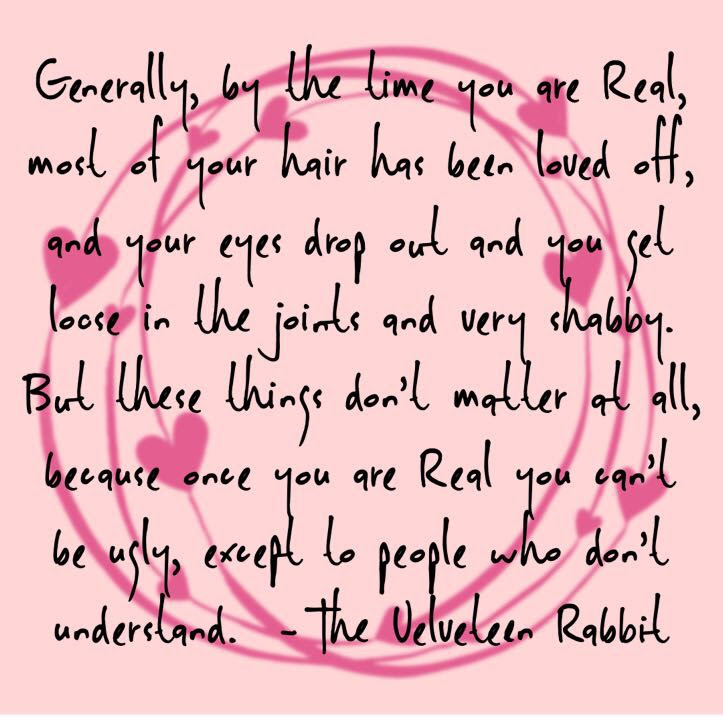 Generally, by the time you are Real,
most of your hair has been loved off,
and your eyes drop out and you get
loose in the joints and very shabby.
But these things don't matter at all,
because once you are Real you can't
be ugly, except to people who don't
understand. - The Velveteen Rabbit